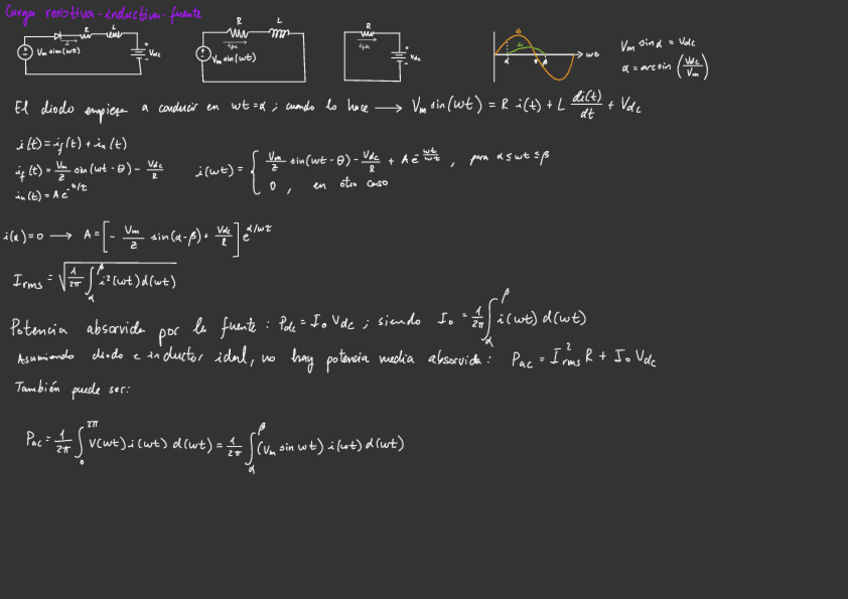 Carga resistiva-inductiva-fuente
R L
Vm sin(wt) Vdc
R L
Vm sin(wt)
R
Vdc
α π β wt
Vm sin α = Vdc
α = arcsin (Vdc/Vm)
El diodo empieza a conducir en wt=α; cuando lo hace → Vm sin(wt) = R i(t) + L di(t)/dt + Vdc
i(t) = if(t) + in(t)
if(t) = Vm/Z sin(wt-θ) - Vdc/R
in(t) = A e^-t/τ
i(wt) = { Vm/Z sin(wt-θ) - Vdc/R + A e^-wt/wτ , para α ≤ wt ≤ β
0 , en otro caso
i(α) = 0 → A = [- Vm/Z sin(α-β) + Vdc/R] e^α/wτ
Irms = √(1/2π ∫α^β i²(wt) d(wt))
Potencia absorvida por la fuente: Pdc = Io Vdc ; siendo Io = 1/2π ∫α^β i(wt) d(wt)
Asumiendo diodo e inductor ideal, no hay potencia media absorvida: Pac = I²rms R + Io Vdc
También puede ser:
Pac = 1/2π ∫0^2π V(wt) i(wt) d(wt) = 1/2π ∫α^β (Vm sin wt) i(wt) d(wt)